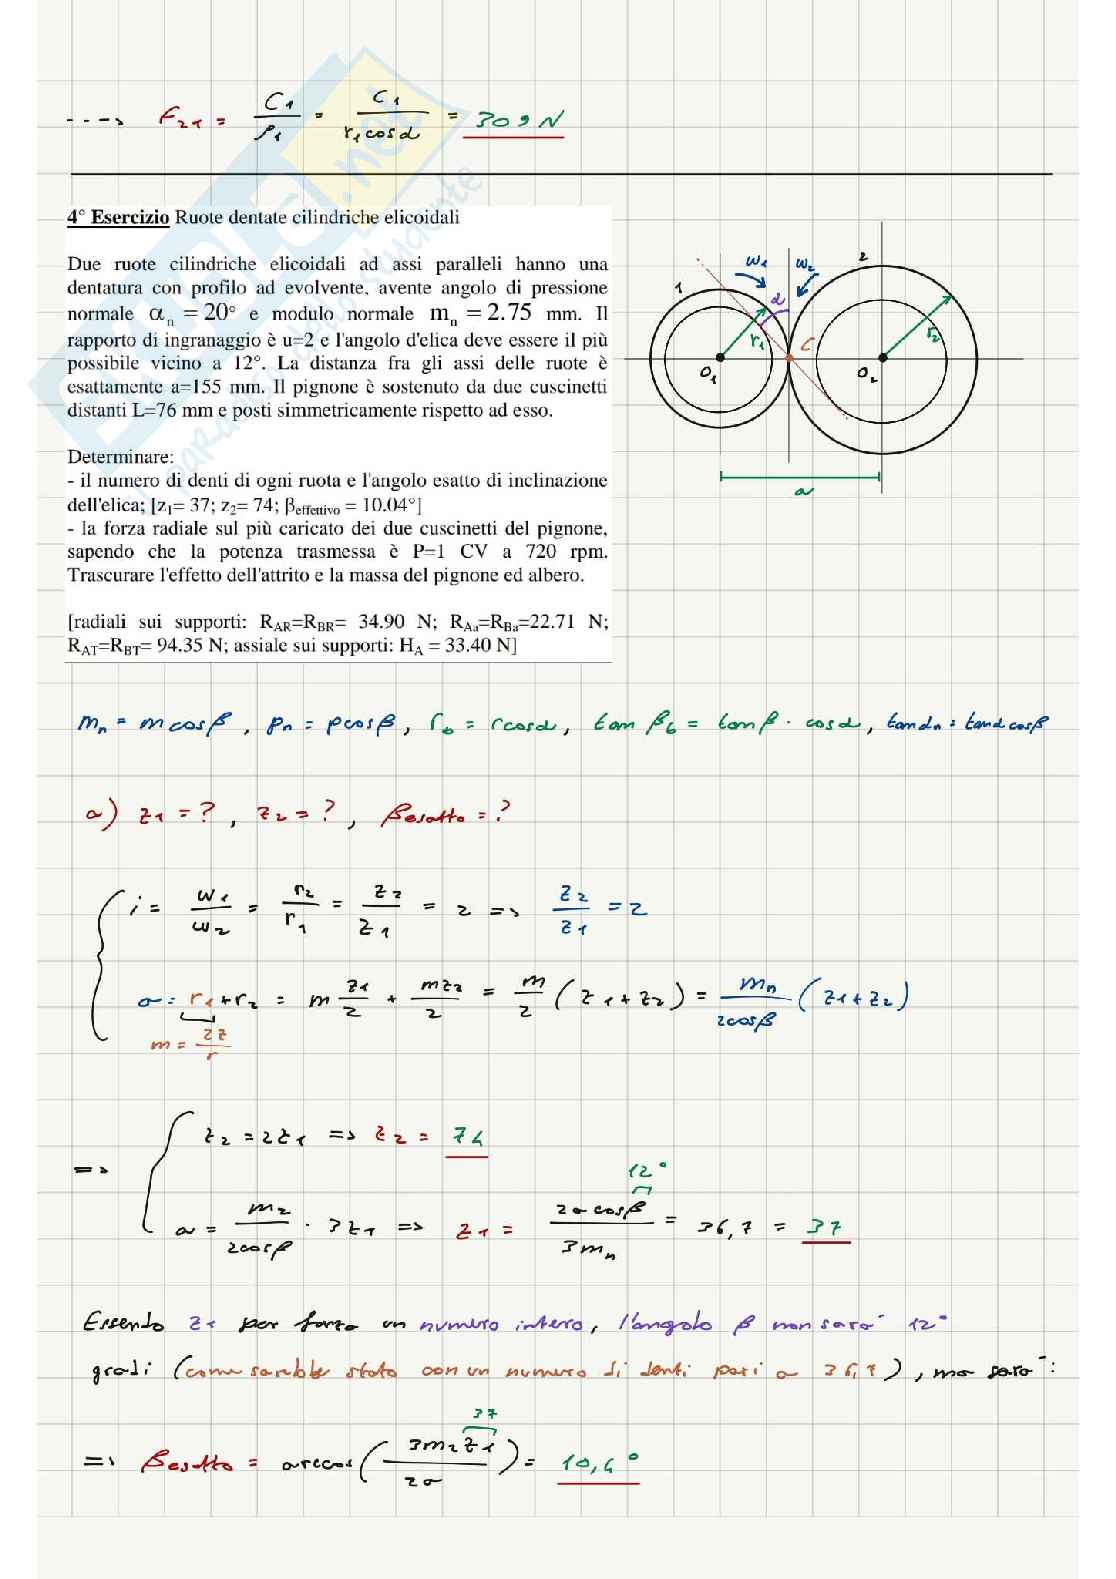 ---> F₂₁ = C₁/ρ₁ = C₁/(r₁cosα) = 309 N
4° Esercizio Ruote dentate cilindriche elicoidali
Due ruote cilindriche elicoidali ad assi paralleli hanno una
dentatura con profilo ad evolvente, avente angolo di pressione
normale αₙ = 20° e modulo normale mₙ = 2.75 mm. Il
rapporto di ingranaggio è u=2 e l'angolo d'elica deve essere il più
possibile vicino a 12°. La distanza fra gli assi delle ruote è
esattamente a=155 mm. Il pignone è sostenuto da due cuscinetti
distanti L=76 mm e posti simmetricamente rispetto ad esso.
Determinare:
- il numero di denti di ogni ruota e l'angolo esatto di inclinazione
dell'elica; [z₁= 37; z₂= 74; β_effettivo = 10.04°]
- la forza radiale sul più caricato dei due cuscinetti del pignone,
sapendo che la potenza trasmessa è P=1 CV a 720 rpm.
Trascurare l'effetto dell'attrito e la massa del pignone ed albero.
[radiali sui supporti: R_AR=R_BR= 34.90 N; R_Aa=R_Ba=22.71 N;
R_AT=R_BT= 94.35 N; assiale sui supporti: H_A = 33.40 N]
1 ω₁ ω₂ 2
α
r₁ C r₂
O₁ O₂
a
mₙ = m cosβ, pₙ = p cosβ, r_b = r cosα, tan β_b = tanβ · cosα, tanαₙ = tanα cosβ
a) z₁ = ?, z₂ = ?, βesatto = ?
i = ω₁/ω₂ = r₂/r₁ = z₂/z₁ = 2 => z₂/z₁ = 2
a = r₁+r₂ = m z₁/2 + mz₂/2 = m/2 (z₁+z₂) = mₙ/(2cosβ) (z₁+z₂)
m = 2z/r
z₂ = 2z₁ => z₂ = 74
12°
=> a = m₂/(2cosβ) · 3z₁ => z₁ = 2a cosβ/(3mₙ) = 36,7 = 37
Essendo z₁ per forza un numero intero, l'angolo β non sarà 12°
gradi (come sarebbe stato con un numero di denti pari a 36,7), ma sarà:
37
=> βesatto = arccos(3m₂z₁/2a) = 10,4°